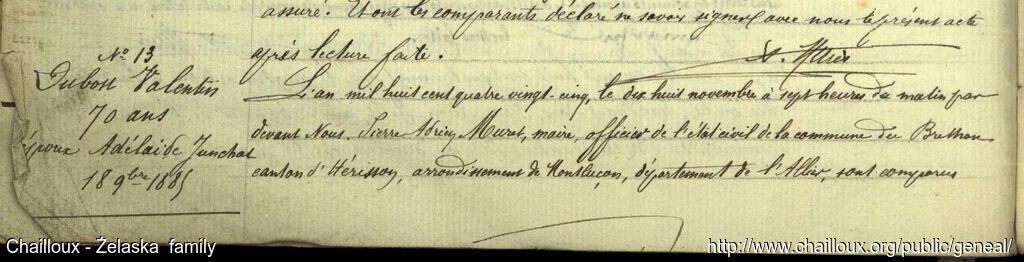 assuré. Et ont les comparants déclaré ne savoir signer avec nous le présent acte
après lecture faite.
N° 13
Dubost Valentin
70 ans
époux Adélaïde Junchat
18 9bre 1885
L'an mil huit cent quatre vingt-cinq, le dix huit novembre à sept heures du matin par
devant Nous, Pierre Muret, maire, officier de l'état civil de la commune du Brethon
canton d'Hérisson, arrondissement de Montluçon, département de l'Allier, sont comparus
Chailloux - Želaska family
http://www.chailloux.org/public/geneal/